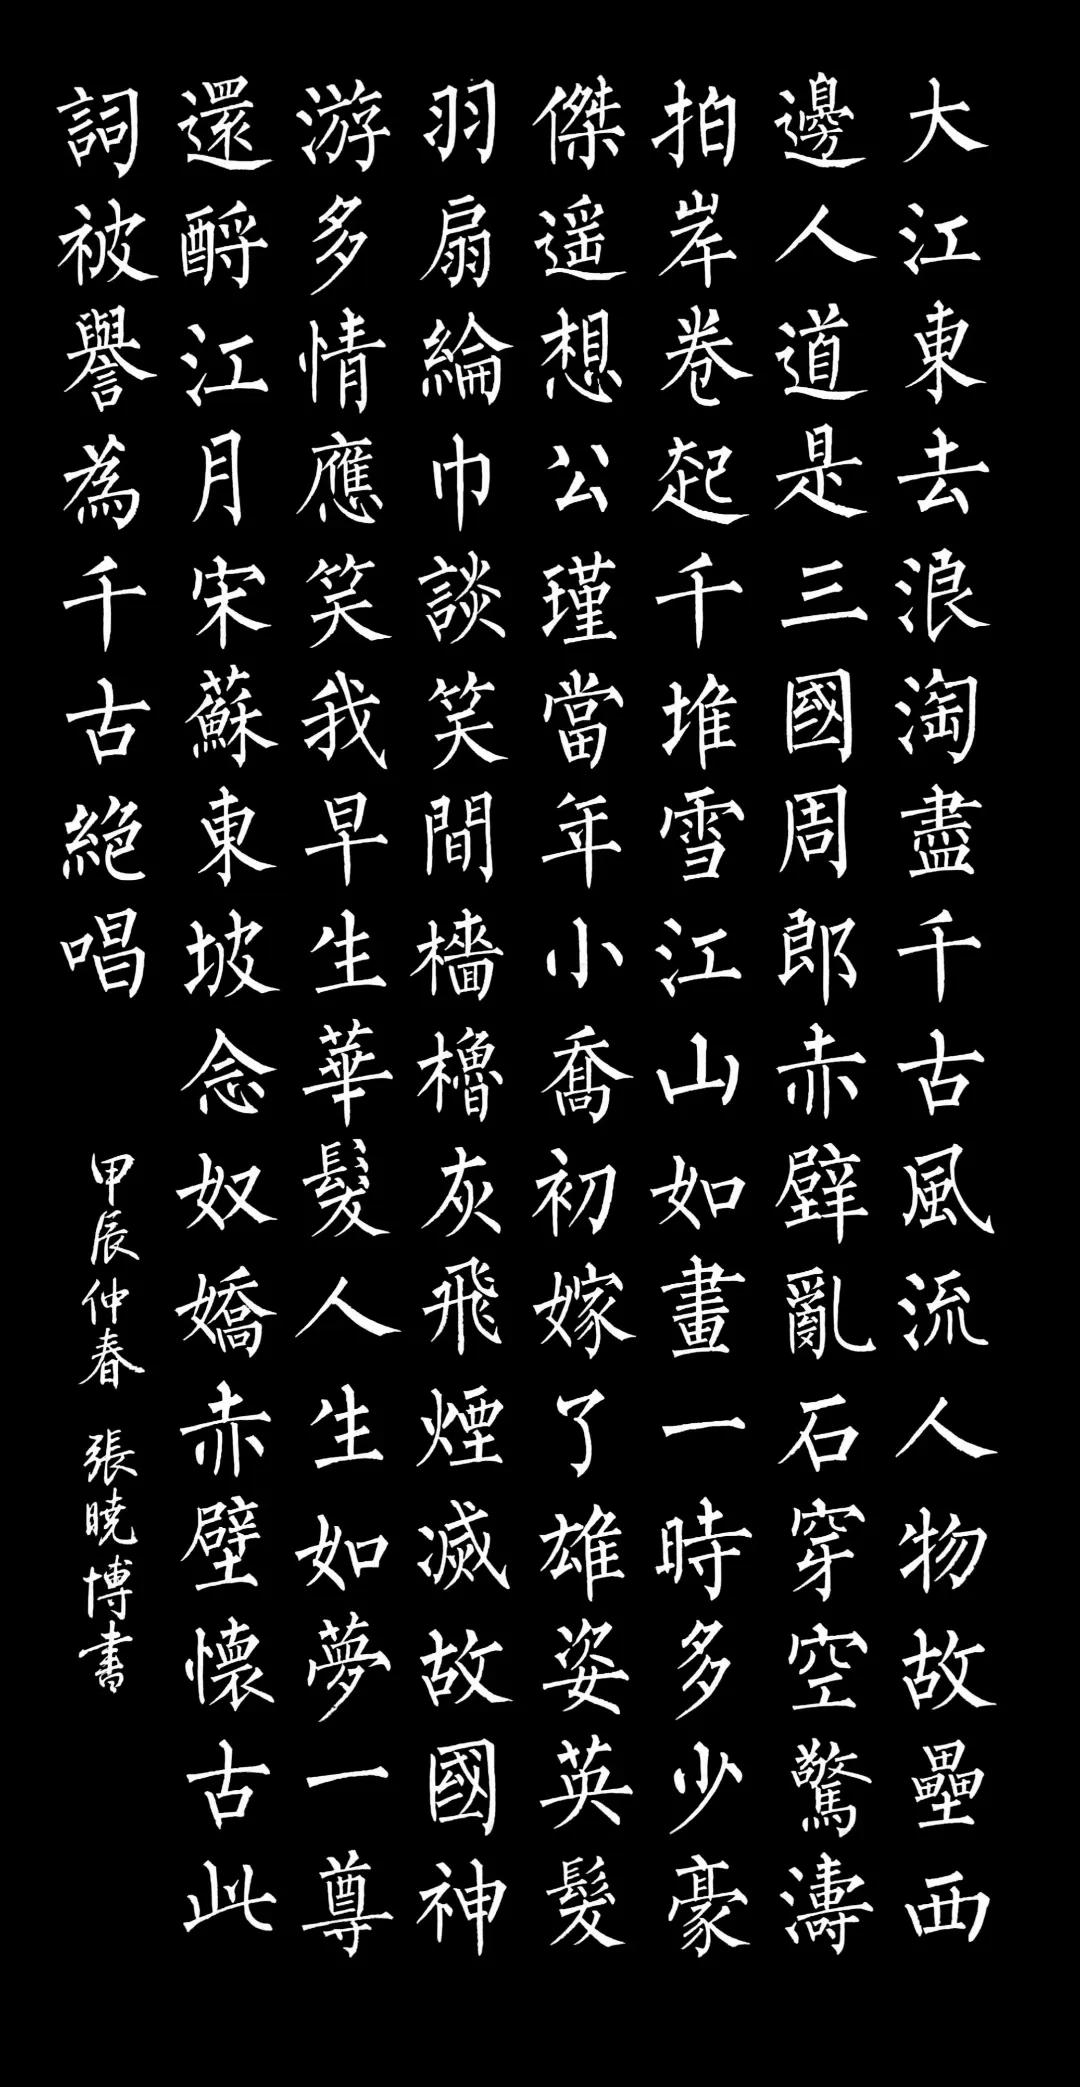 大江東去浪淘盡千古風流人物故壘西
邊人道是三國周郎赤壁亂石穿空驚濤
拍岸卷起千堆雪江山如畫一時多少豪
傑遥想公瑾當年小喬初嫁了雄姿英髮
羽扇綸巾談笑間檣櫓灰飛煙滅故國神
游多情應笑我早生華髮人生如夢一尊
還酹江月宋蘇東坡念奴嬌赤壁懷古此
詞被譽為千古絕唱
甲辰仲春 張曉博書